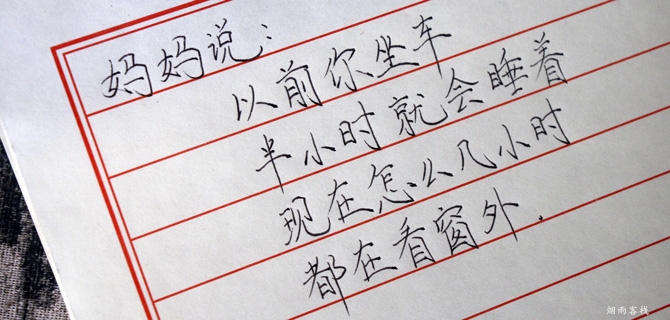 妈妈说：
以前你坐车
半小时就会睡着
现在怎么几小时
都在看窗外.
烟雨客栈